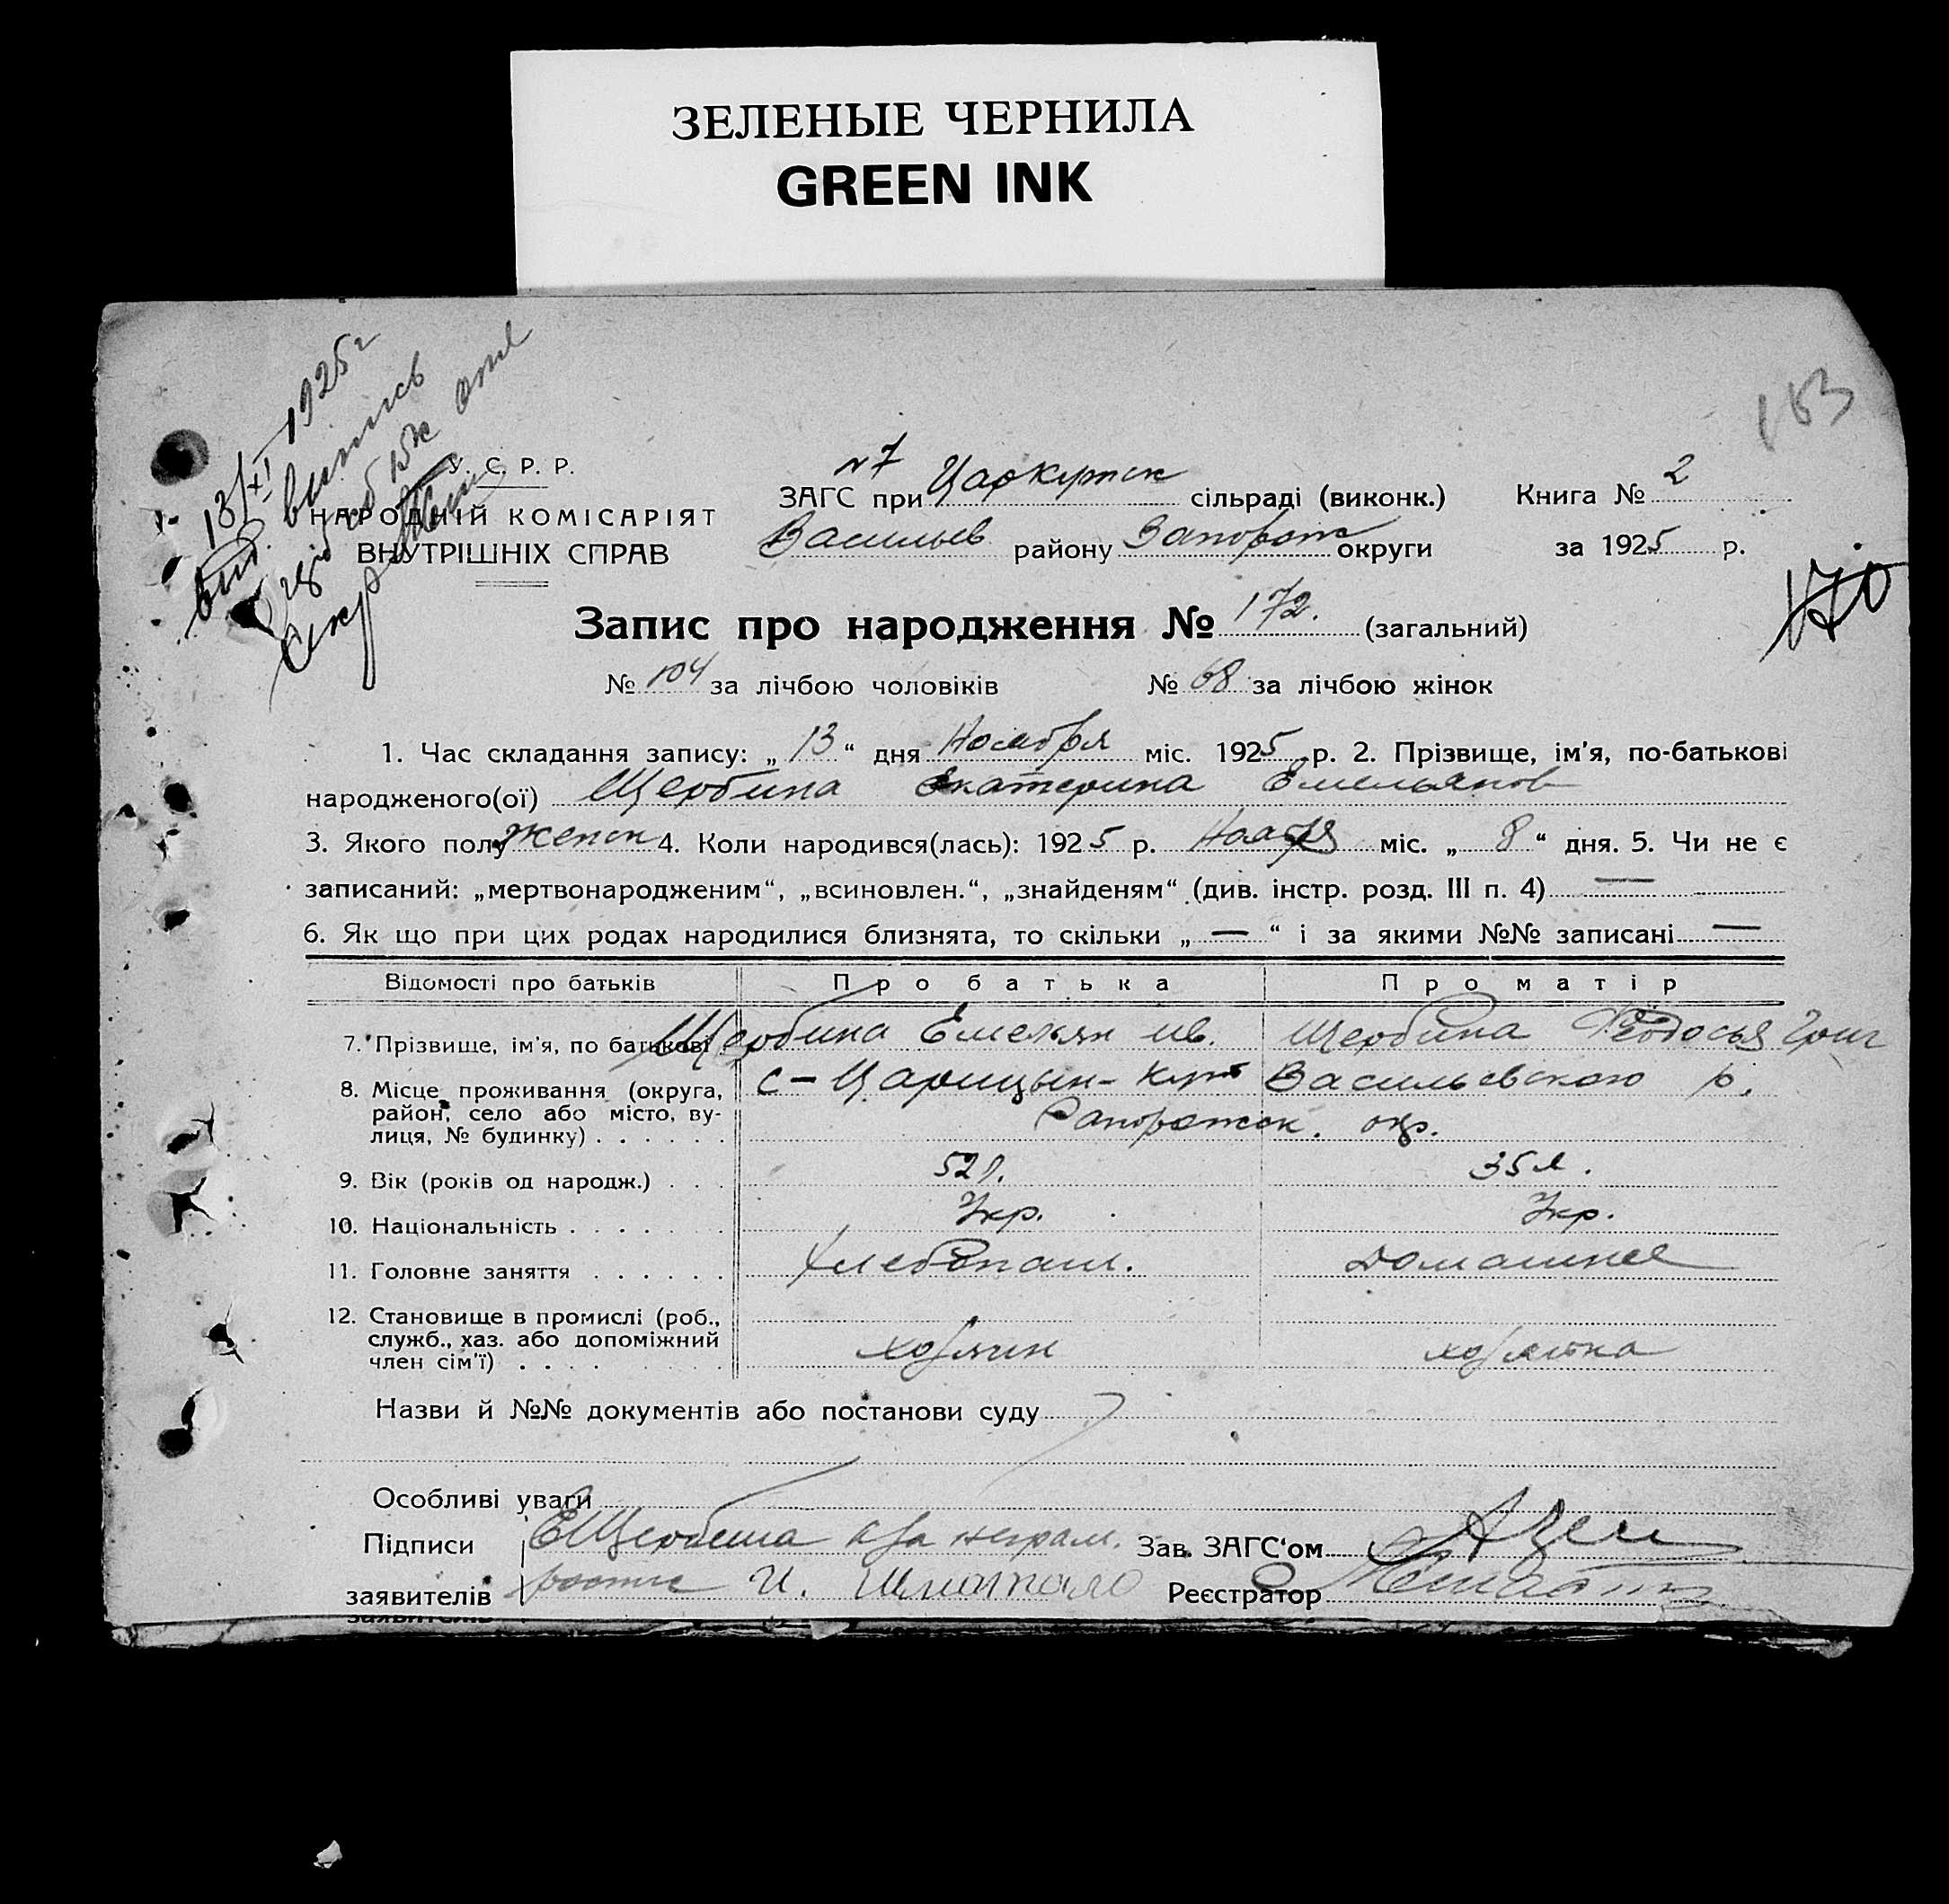 ЗЕЛЕНЫЕ ЧЕРНИЛА
GREEN INK
13/XI 1925 г
вид. випись
163
У. С. Р. Р.
НАРОДНІЙ КОМІСАРІЯТ
ВНУТРІШНІХ СПРАВ
№7
ЗАГС при Царкутск сільраді (виконк.) Книга № 2
Васильев району Запорож округи за 1925 р.
170
Запис про народження № 172. (загальний)
№ 104 за лічбою чоловіків № 68 за лічбою жінок
1. Час складання запису: „ 13 “ дня Ноября міс. 1925 р. 2. Прізвище, ім'я, по-батькові
народженого(ої) Щербина Екатерина Емельянов
3. Якого полу женск 4. Коли народився(лась): 1925 р. Ноября міс. „ 8 “ дня. 5. Чи не є
записаний: „мертвонародженим“, „всиновлен.“, „знайденям“ (див. інстр. розд. III п. 4) —
6. Як що при цих родах народилися близнята, то скільки „ — “ і за якими №№ записані —
Відомості про батьків Про батька Про матір
7. Прізвище, ім'я, по батькові Щербина Емельян Ив. Щербина Феодосья Григ
8. Місце проживання (округа, с-Царицын-Кут Васильевского р.
район, село або місто, ву-
лиця, № будинку) . . . . . . Запорожск. окр.
9. Вік (років од народж.) . . . 52 л. 35 л.
10. Національність . . . . . . . Укр. Укр.
11. Головне заняття . . . . . . Хлебопаш. Домашнее
12. Становище в промислі (роб.,
служб., хаз. або допоміжний
член сім'ї) . . . . хозяин хозяйка
Назви й №№ документів або постанови суду
Особливі уваги
Підписи Е Щербина а за неграм. Зав. ЗАГС'ом
заявителів роспис И. Реєстратор
заявителів